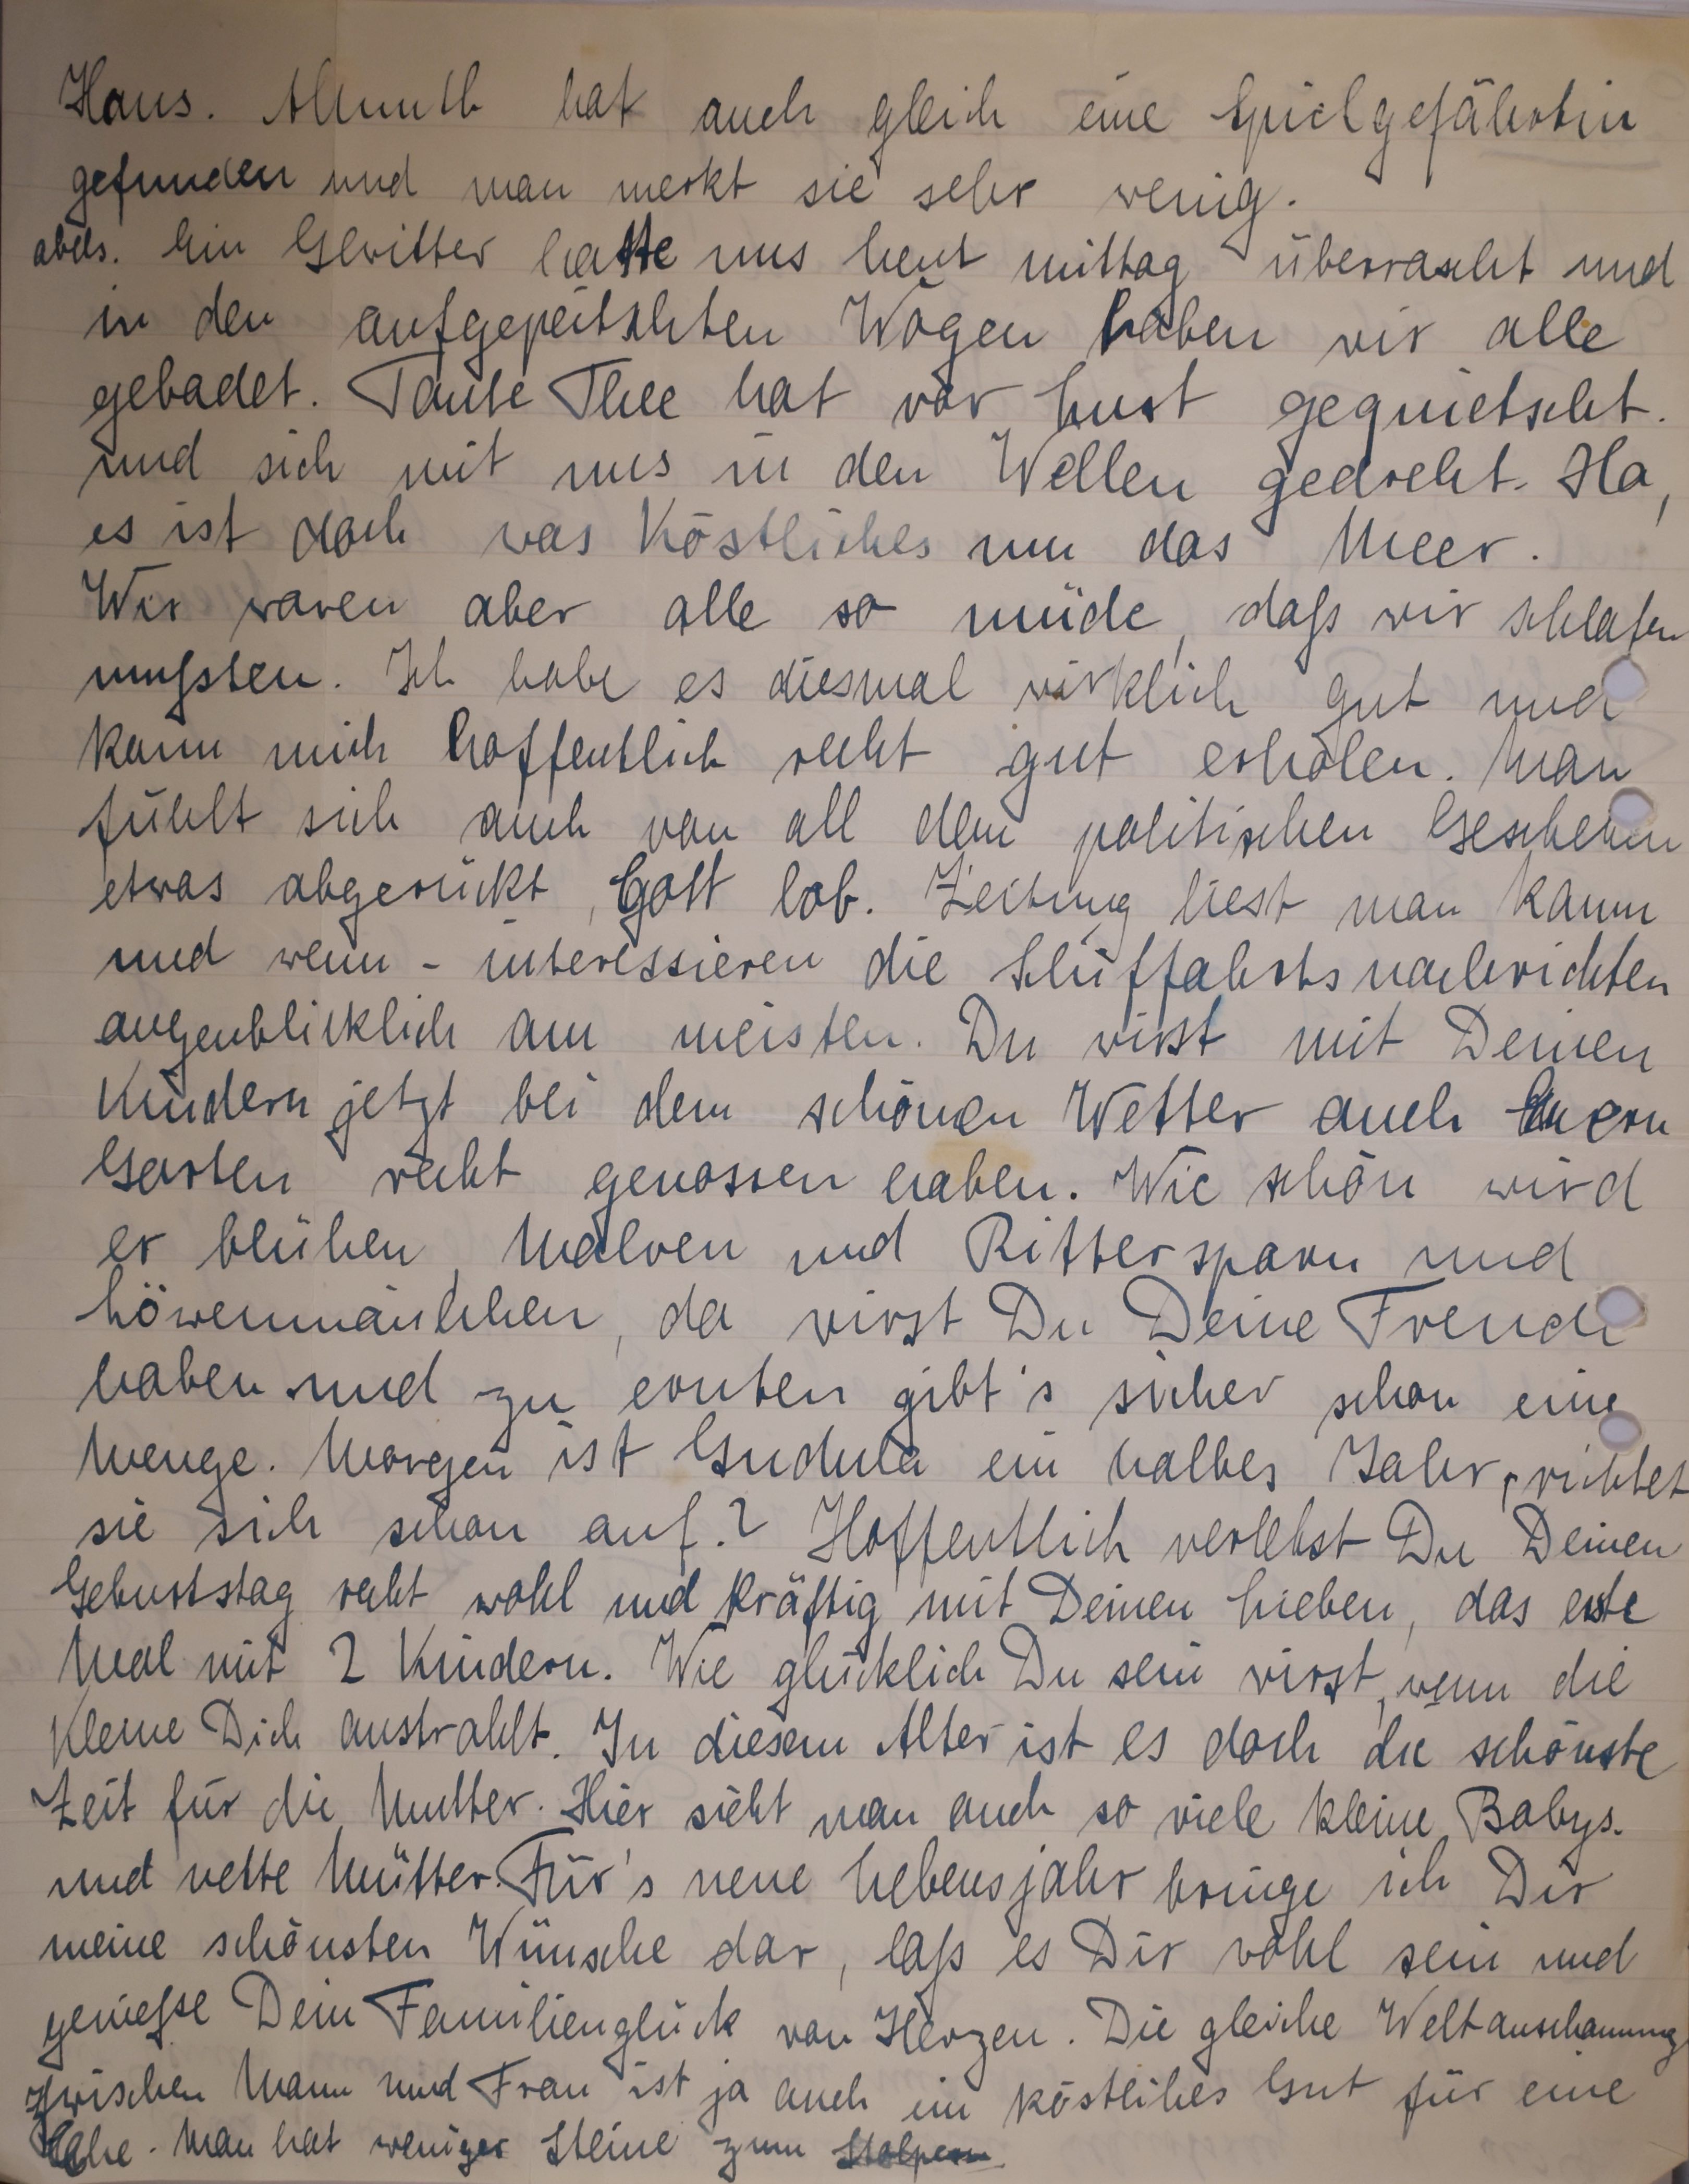 Haus. Almuth hat auch gleich eine Spielgefährtin
gefunden und man merkt sie sehr wenig.
abds. Ein Gewitter hatte uns heut mittag überrascht und
in den aufgepeitschten Wogen haben wir alle
gebadet. Tante Thee hat vor Lust gequietscht.
und sich mit uns in den Wellen gedreht. Ha,
es ist doch was Köstliches um das Meer.
Wir waren aber alle so müde, daß wir schlafen
mußten. Ich habe es diesmal wirklich gut und
kann mich hoffentlich recht gut erholen. Man
fühlt sich auch von all dem politischen Geschehen
etwas abgerückt, Gott lob. Zeitung liest man kaum
und wenn - interessieren die Schiffahrtsnachrichten
augenblicklich am meisten. Du wirst mit Deinen
Kindern jetzt bei dem schönen Wetter auch Euern
Garten recht genossen haben. Wie schön wird
er blühen, Malven und Rittersporn und
Löwenmäulchen, da wirst Du Deine Freude
haben und zu ernten gibt's sicher schon eine
Menge. Morgen ist Gudula ein halbes Jahr, richtet
sie sich schon auf? Hoffentlich verlebst Du Deinen
Geburtstag recht wohl und kräftig mit Deinen Lieben, das erste
Mal mit 2 Kindern. Wie glücklich Du sein wirst, wenn die
Kleine Dich anstrahlt. In diesem Alter ist es doch die schönste
Zeit für die Mutter. Hier sieht man auch so viele kleine Babys.
und nette Mütter. Für's neue Lebensjahr bringe ich Dir
meine schönsten Wünsche dar, laß es Dir wohl sein und
genieße Dein Familienglück von Herzen. Die gleiche Weltanschauung
zwischen Mann und Frau ist ja auch ein köstliches Gut für eine
Ehe. Man hat weniger Steine zum Stolpern